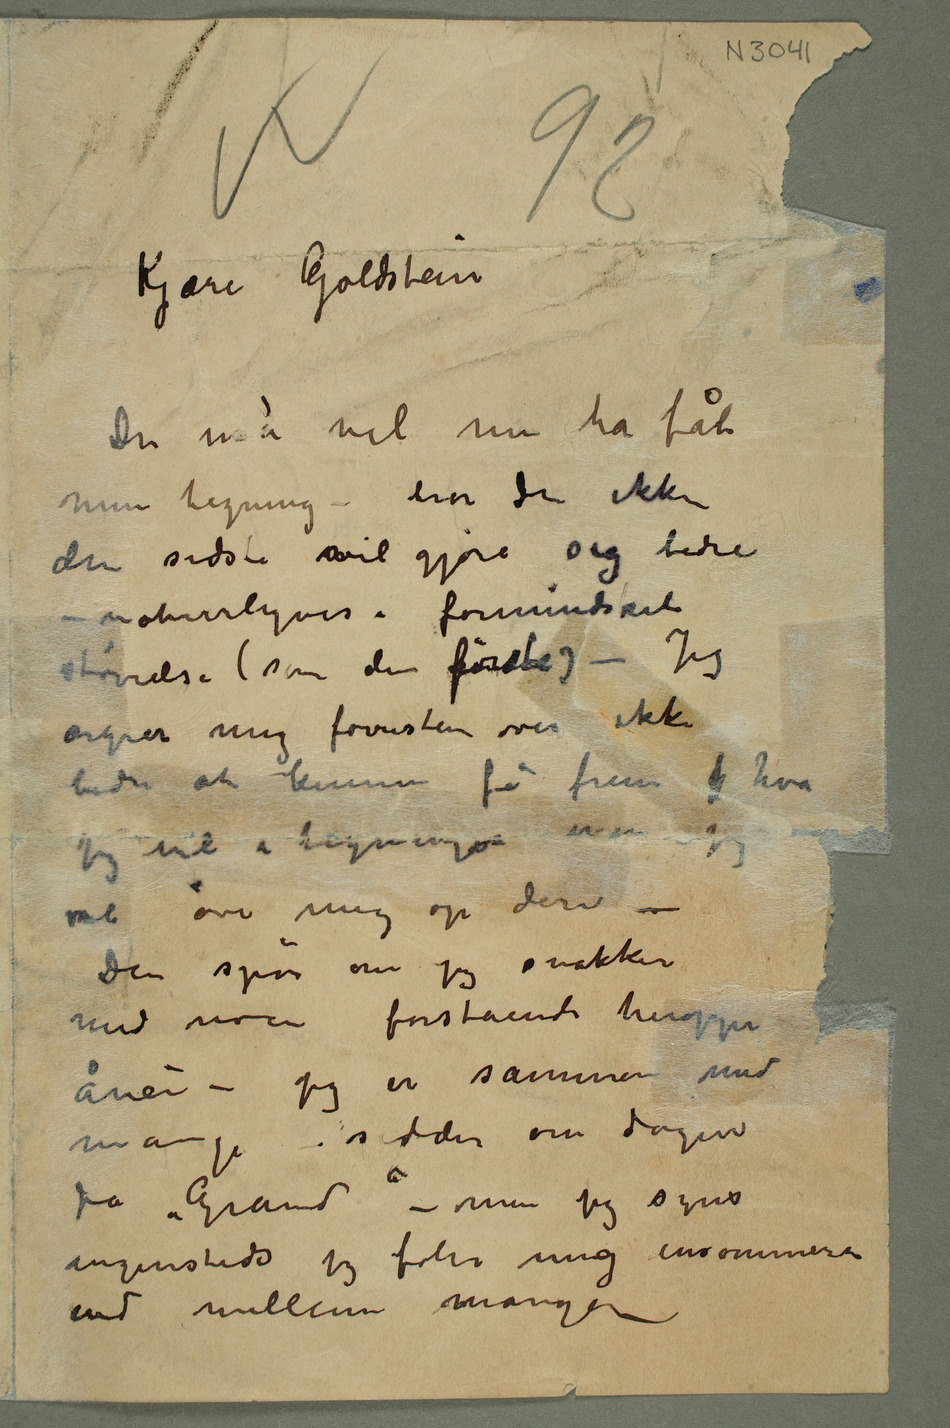 N3041
92
Kjære Goldstein
Du må vel nu ha fåt
min tegning – tror du ikke
den sidste vil gjøre sig bedre
– naturligvis i formindsket
størrelse (som den første) – Jeg
ærgrer mig forresten over ikke
bedre at kunne få frem hva
jeg vil i tegninger men jeg
vil öve mig op deri –
Du spör om jeg snakker
med noen forstående heroppe
ånei – jeg er sammen med
mange – sidder om dagen
på „Grand" – men jeg synes
ingensteds jeg föler mig ensommere
end mellem mange –